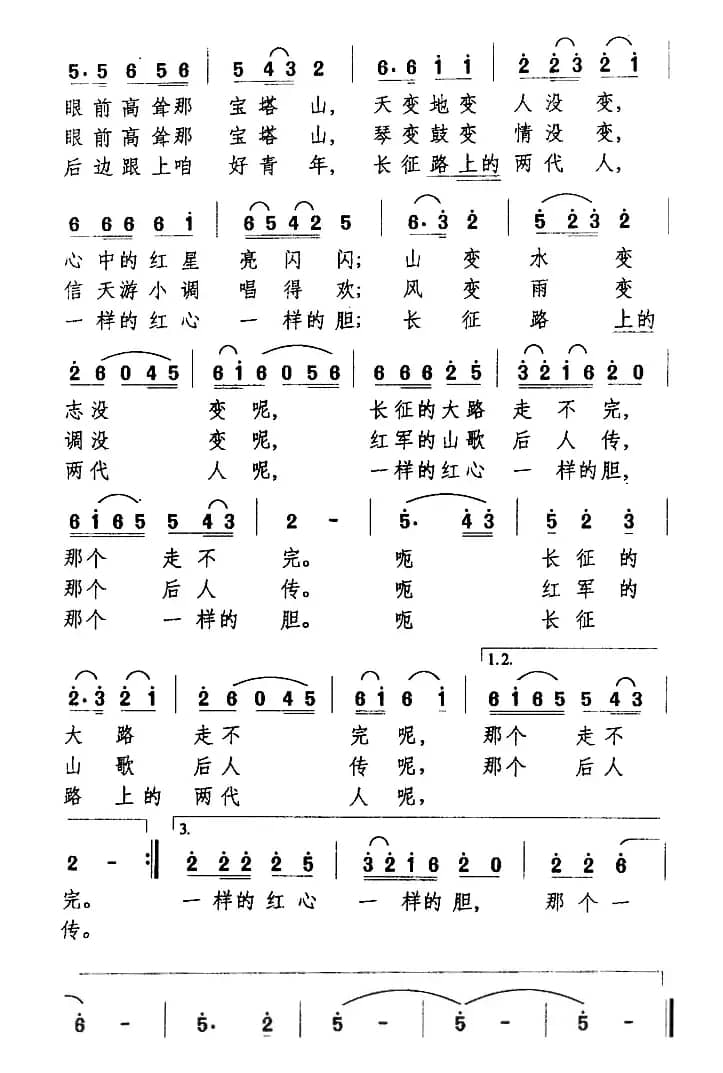 5. 5 6 5 6 | 5 4 3 2 | 6. 6 i i | 2 2 3 2 i
眼前高耸那 宝塔山, 天变地变 人没变,
眼前高耸那 宝塔山, 琴变鼓变 情没变,
后边跟上咱 好青年, 长征路上的两代人,
6 6 6 6 i | 6 5 4 2 5 | 6. 3 2 | 5 2 3 2
心中的红星 亮闪闪; 山 变 水 变
信天游小调 唱得欢; 风变雨变
一样的红心 一样的胆; 长征路上的
2 6 0 4 5 | 6 i 6 0 5 6 | 6 6 6 2 5 | 3 2 i 6 2 0
志没 变呢, 长征的大路 走不完,
调没 变呢, 红军的山歌 后人传,
两代 人呢, 一样的红心 一样的胆,
6 i 6 5 5 4 3 | 2 - | 5. 4 3 | 5 2 3
那个 走不 完。 呃 长征的
那个 后人 传。 呃 红军的
那个 一样的 胆。 呃 长征
1.2.
2. 3 2 i | 2 6 0 4 5 | 6 i 6 i | 6 i 6 5 5 4 3
大路 走不 完呢, 那个 走不
山歌 后人 传呢, 那个 后人
路上的 两代 人呢,
3.
2 - :| 2 2 2 2 5 | 3 2 i 6 2 0 | 2 2 6
完。 一样的红心 一样的胆, 那个一
传。
6 - | 5. 2 | 5 - | 5 - | 5 - |